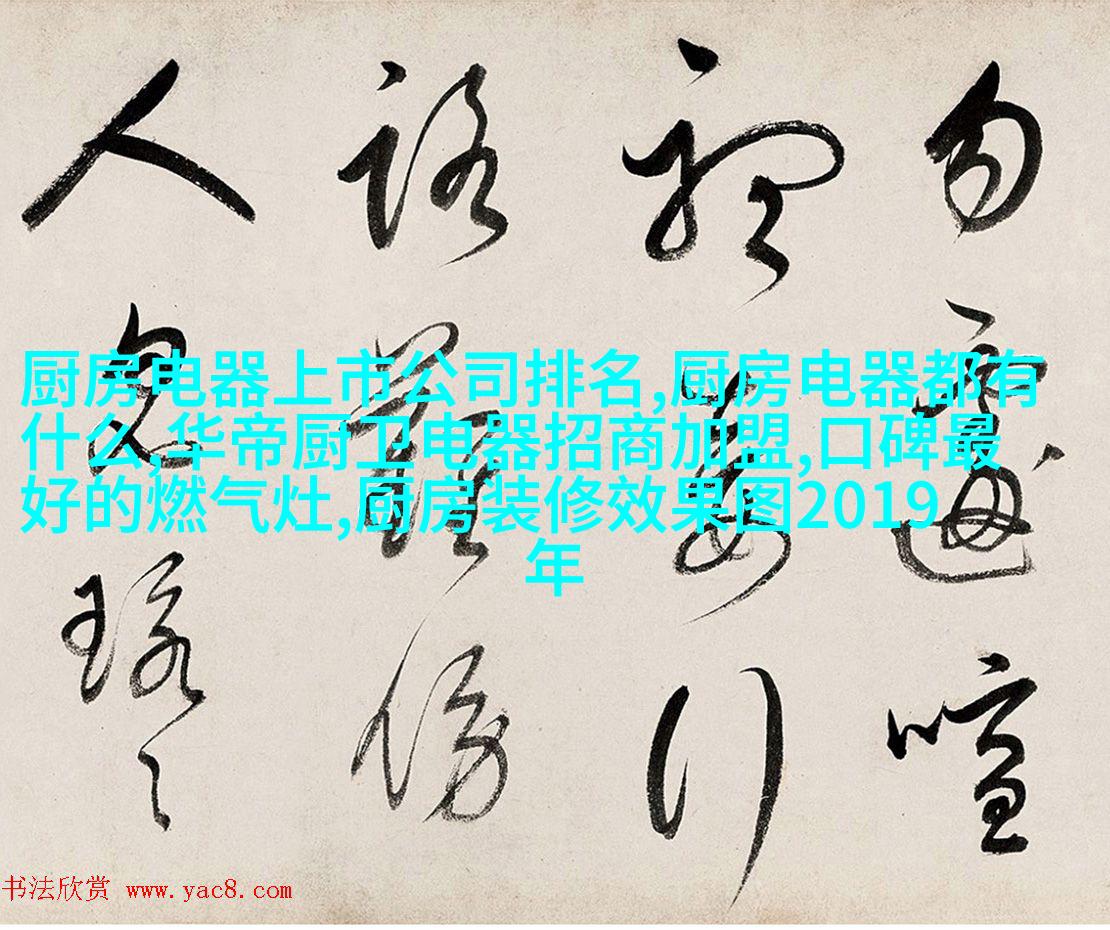 勿喧
行
路難傍
人
厨房电器上市公司排名,厨房电器都有
什么,华帝厨卫电器招商加盟,口碑最
好的燃气灶,厨房装修效果图2019
年
书法欣赏 www.yac8.com